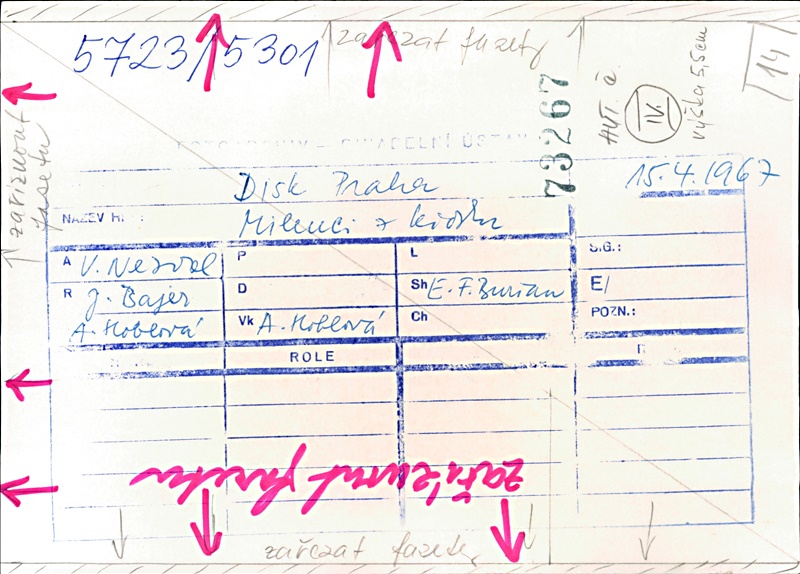 5723/5301
zařezat fazety
73267
AVT č.
IV.
výška 5,5cm
14
zaříznout
fasetu
DIVADELNÍ ÚSTAV
Disk Praha
15.4.1967
NÁZEV H
Milenci z kiosku
A V. Nezval
P
L
SIG.:
R J. Bajer
D
Sh E. F. Burian
E/
A. Hoblová
Vk A. Hoblová
Ch
POZN.:
ROLE
zaříznout fasetu
zařezat fazety